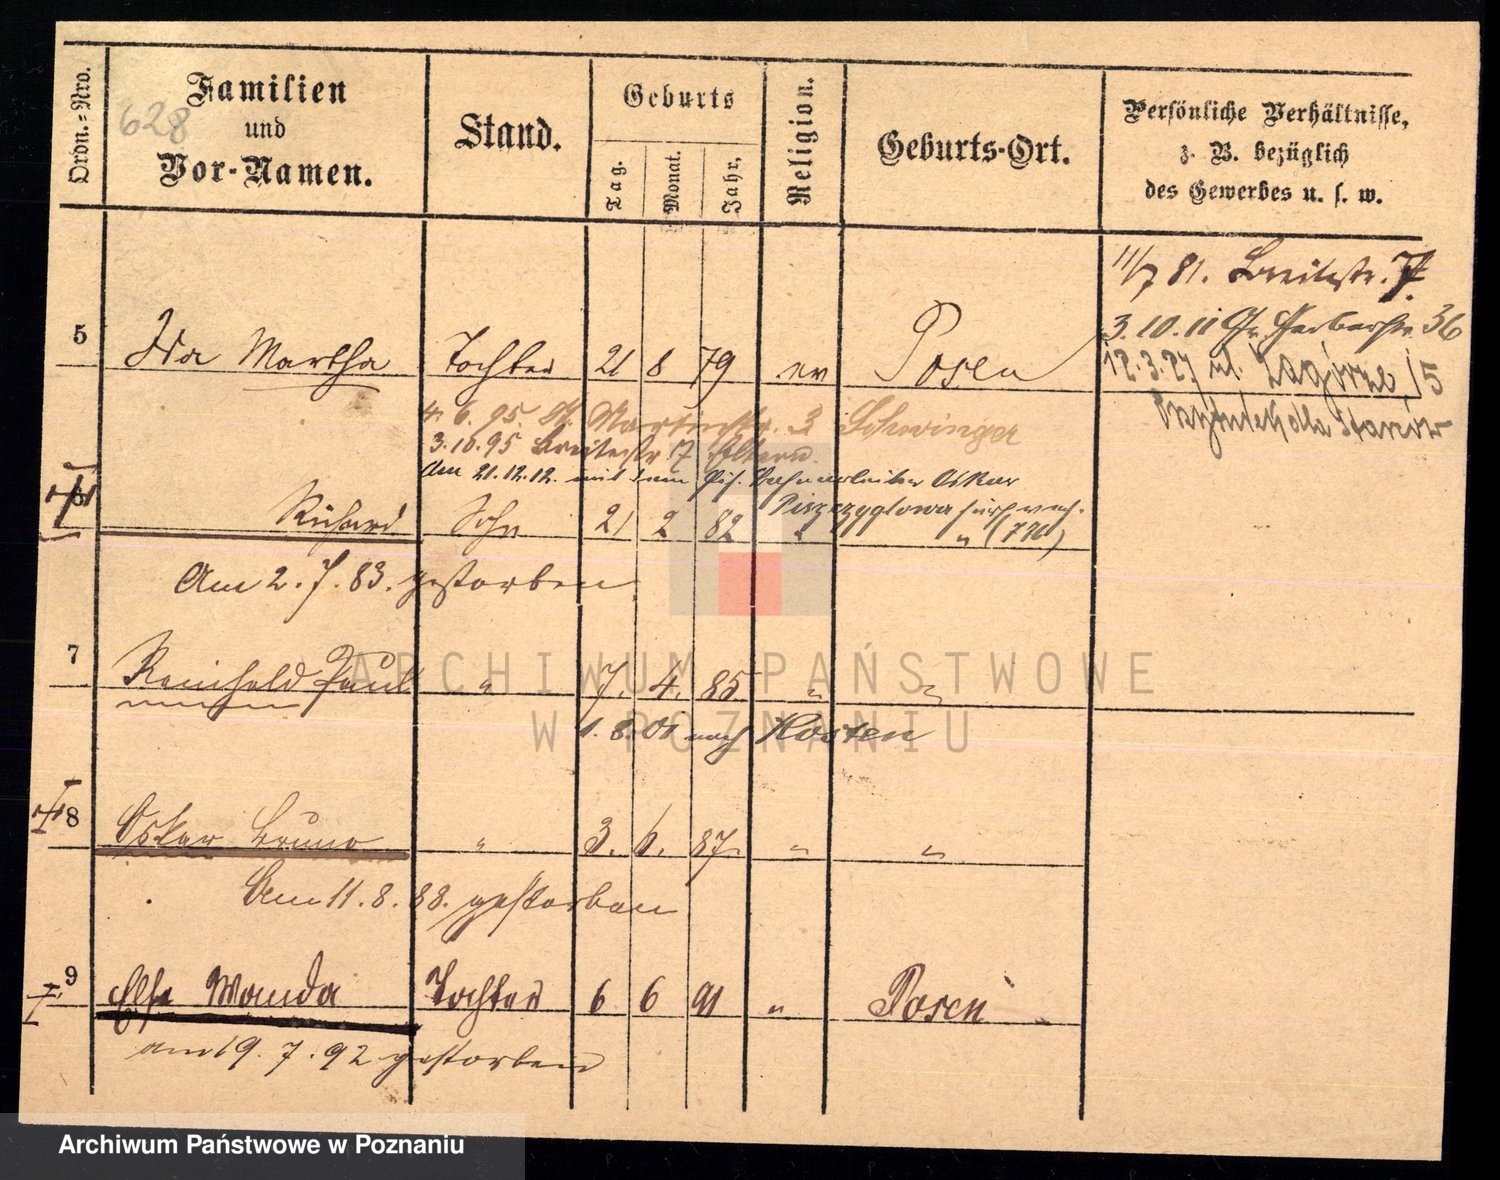 Ordn.-Nro.
Familien
und
Vor-Namen.
628
Stand.
Geburts
Tag.
Monat.
Jahr.
Religion.
Geburts-Ort.
Persönliche Verhältnisse,
z. B. bezüglich
des Gewerbes u. s. w.
11/7 81. Breitestr. 7
3.10.11 Gr. Gerberstr 36
5 Ida Martha Tochter 21 8 79 ev Posen
12.3.27 ul. 15
4. 6. 95. St. Martinstr. 3 Schwinger
3.10.95 Breitestr 7 Eltern.
Am 21.12.12. mit dem Oskar
6 Richard Sohn 21 2 82 " " (770)
Am 2. 7. 83. gestorben
7 Reinhold Paul " 7. 4. 85 " "
1. 8. 01 nach Kosten
8 Oskar Bruno " 3. 6. 87. " "
Am 11. 8. 88. gestorben
9 Else Wanda Tochter 6 6 91 " Posen
am 19. 7. 92 gestorben
ARCHIWUM PAŃSTWOWE
W POZNANIU
Archiwum Państwowe w Poznaniu